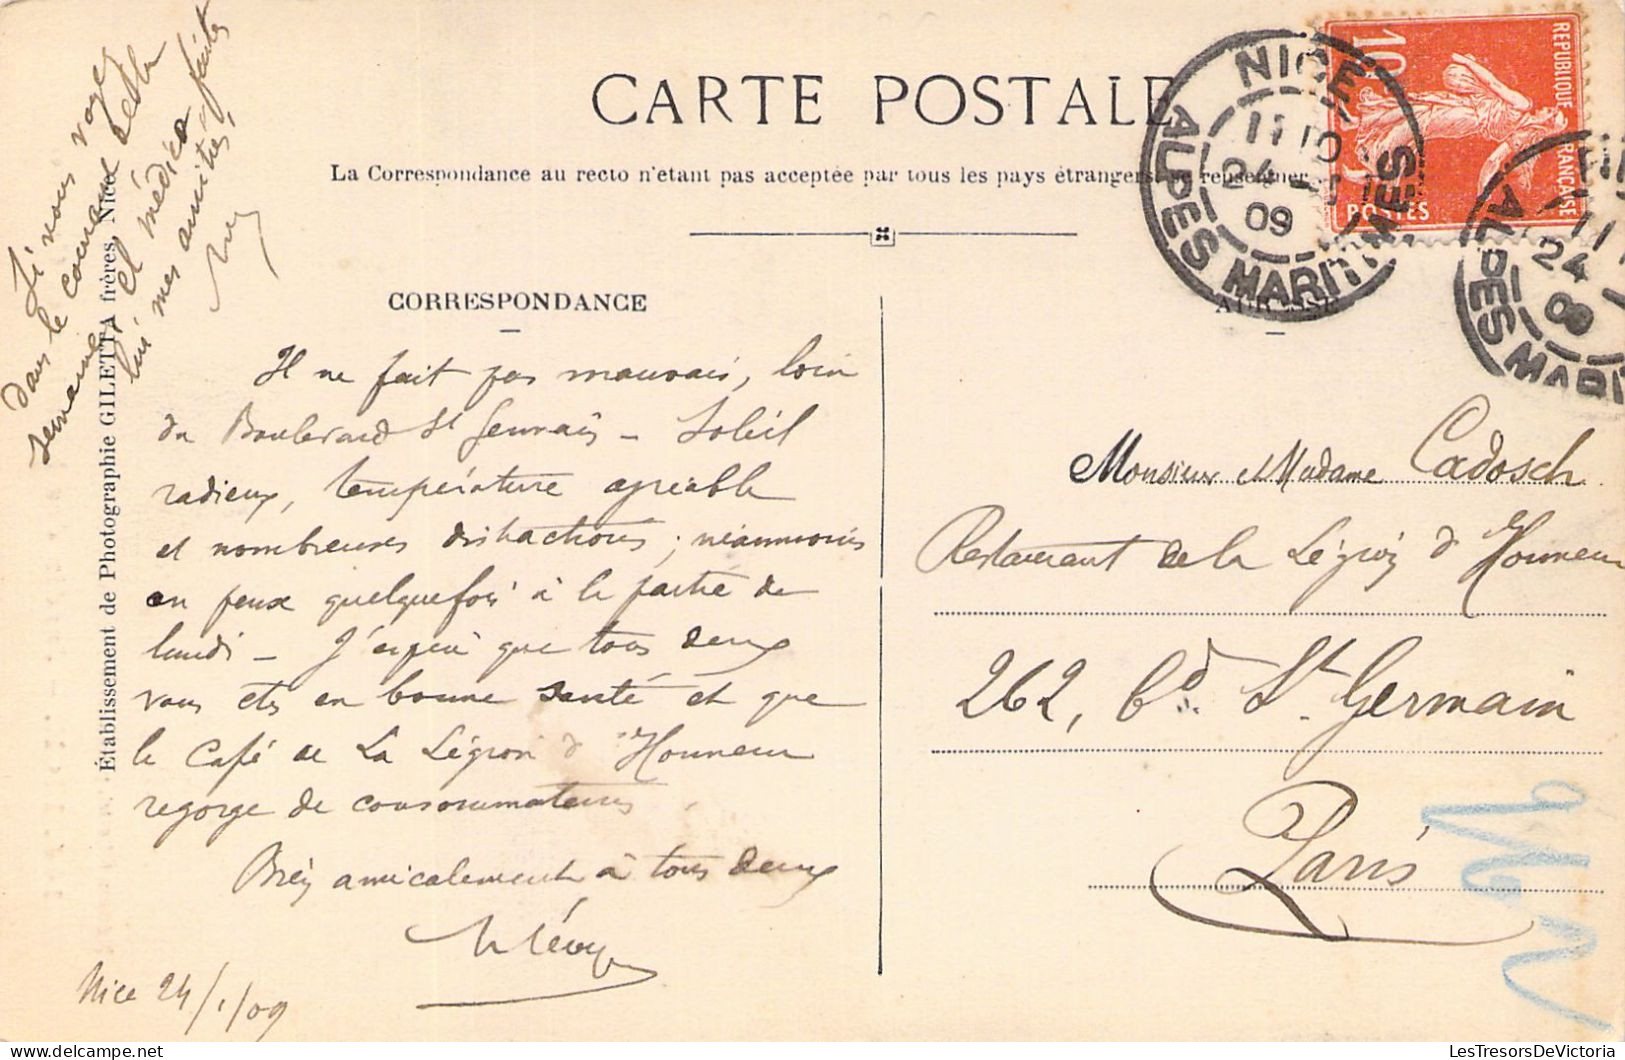 CARTE POSTALE
La Correspondance au recto n'étant pas acceptée par tous les pays étrangers, se renseigner
CORRESPONDANCE
Il ne fait pas mauvais, loin
du Boulevard St Germain – Soleil
radieux, température agréable
et nombreuses distractions ; néanmoins
on peux quelquefois à la partie de
lundi – J'espère que tous deux
vous etes en bonne santé et que
le Café de La Légion d'Honneur
regorge de consommateurs.
Bien amicalement à tous deux
Lévy
Nice 24/1/09
Si vous voyez
dans le courant de la
semaine, el médico faites
lui mes amitiés,
Établissement de Photographie GILETTA frères, Nice
ADRESSE
Monsieur et Madame Cadosch
Restaurant de la Légion d'Honneur
262, Bd. St. Germain
Paris
REPUBLIQUE FRANÇAISE
10c
POSTES
NICE
11 10
24 - 1
09
ALPES MARITIMES
NI
11
24
09
ALPES MARIT
LesTresorsDeVictoria